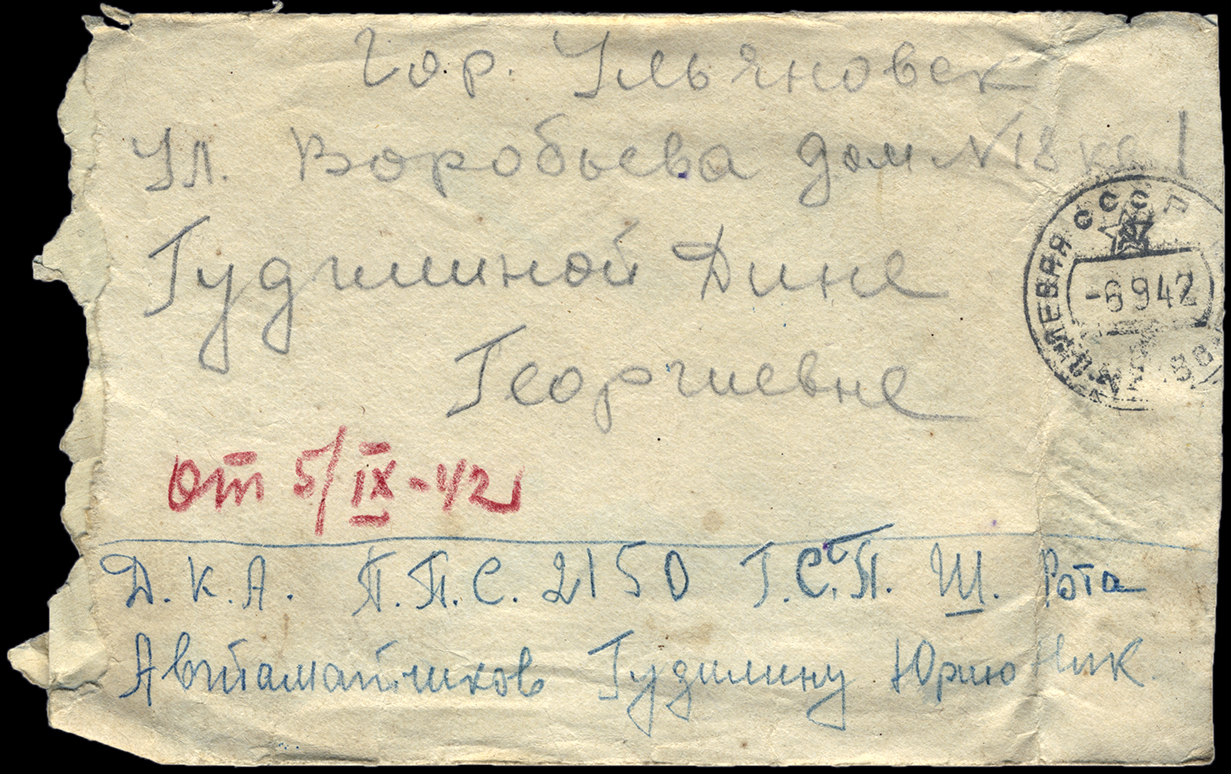 Гор. Ульяновск
Ул. Воробьева дом N 18 кв 1
Гудилиной Дине
Георгиевне
СССР
-6 9 42
От 5/IX-42
Д.К.А. П.П.С. 2150 Г.С.П. Ш. Рота
Автаматчиков Гудилину Юрию Ник.